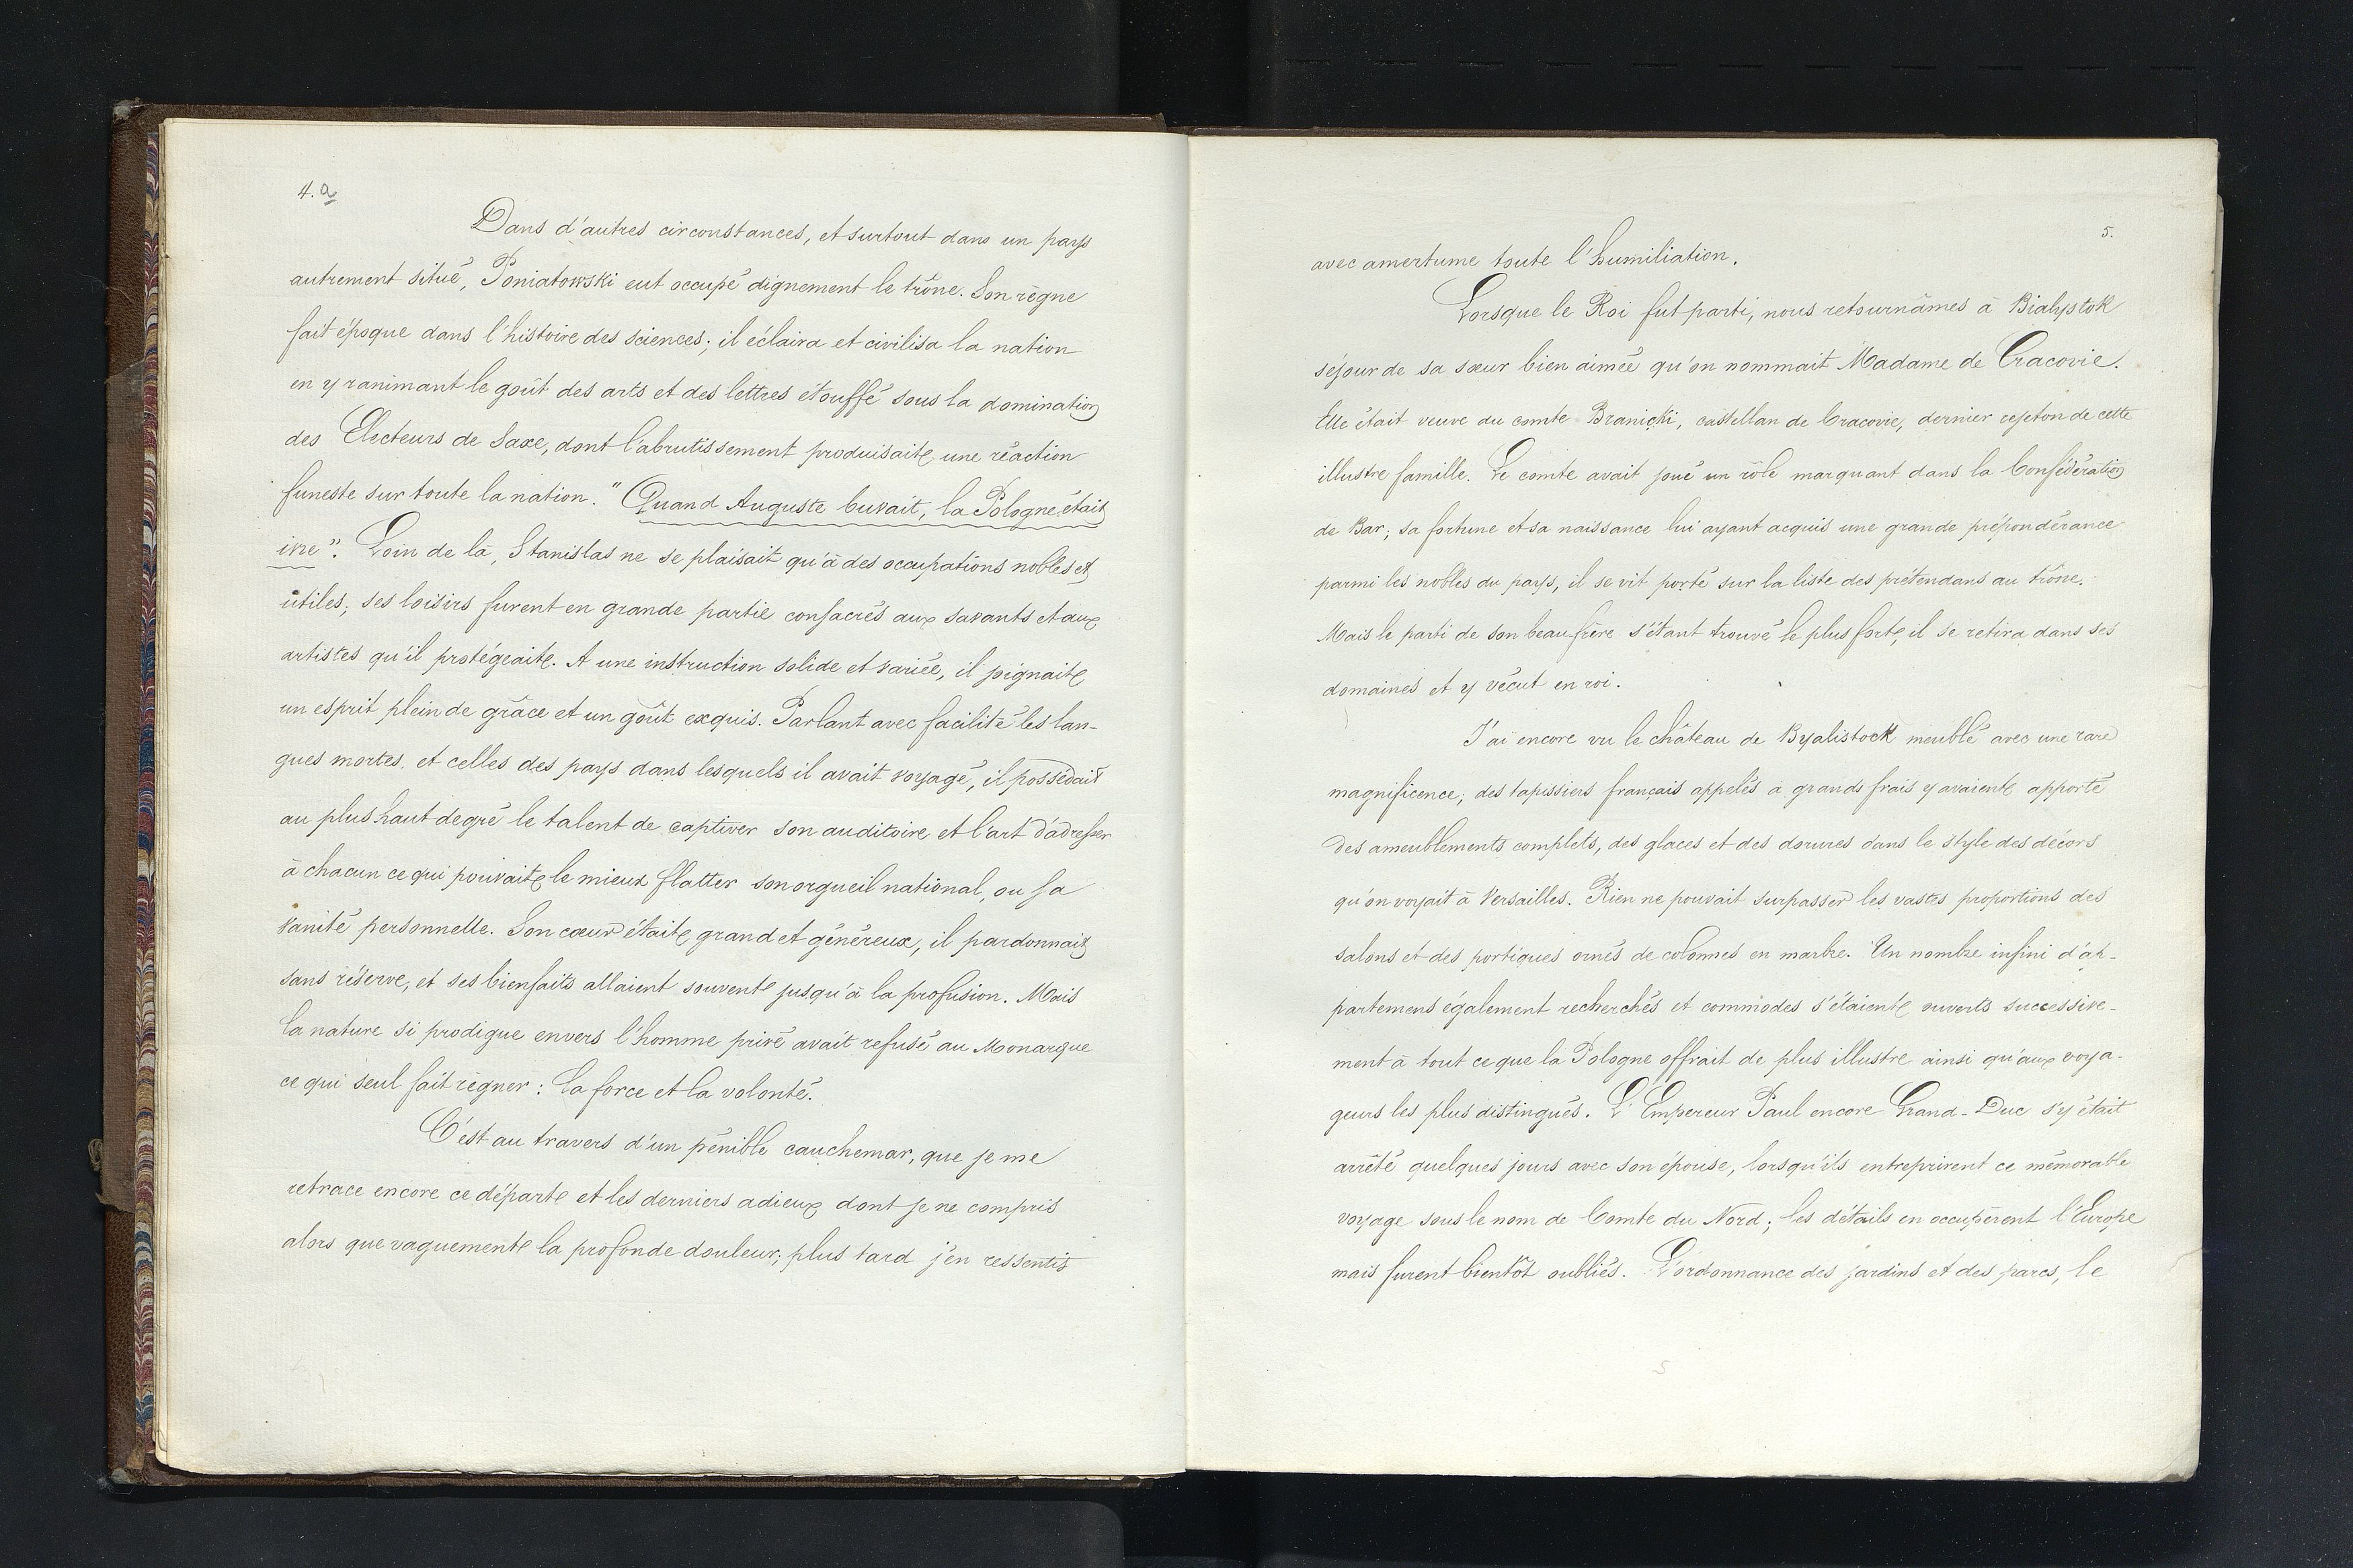 4. a
Dans d'autres circonstances, et surtout dans un pays
autrement situé, Poniatowski eut occupé dignement le trône. Son règne
fait époque dans l'histoire des sciences; il éclaira et civilisa la nation
en y ranimant le goût des arts et des lettres étouffé sous la domination
des Electeurs de Saxe, dont l'abrutissement produisait une réaction
funeste sur toute la nation. "Quand Auguste buvait, la Pologne était
ivre". Loin de là, Stanislas ne se plaisait qu'à des occupations nobles et
utiles; ses loisirs furent en grande partie consacrés aux savants et aux
artistes qu'il protégeait. A une instruction solide et variée, il joignait
un esprit plein de grâce et un goût exquis. Parlant avec facilité les lan-
gues mortes, et celles des pays dans lesquels il avait voyagé, il possédait
au plus haut degré le talent de captiver son auditoire et l'art d'adresser
à chacun ce qui pouvait le mieux flatter son orgueil national, ou sa
vanité personnelle. Son cœur était grand et généreux, il pardonnait
sans réserve, et ses bienfaits allaient souvent jusqu'à la profusion. Mais
la nature si prodigue envers l'homme privé avait refusé au Monarque
ce qui seul fait règner: la force et la volonté.
C'est au travers d'un pénible cauchemar, que je me
retrace encore ce départ et les derniers adieux dont je ne compris
alors que vaguement la profonde douleur; plus tard j'en ressentis
5.
avec amertume toute l'humiliation.
Lorsque le Roi fut parti, nous retournâmes à Bialystok
séjour de sa sœur bien aimée qu'on nommait Madame de Cracovie.
Elle était veuve du comte Branicki, castellan de Cracovie, dernier rejeton de cette
illustre famille. Le comte avait joué un rôle marquant dans la Confédération
de Bar; sa fortune et sa naissance lui ayant acquis une grande prépondérance
parmi les nobles du pays, il se vit porté sur la liste des prétendans au trône.
Mais le parti de son beau-frère s'étant trouvé le plus fort, il se retira dans ses
domaines et y vécut en roi.
J'ai encore vu le château de Byalistock meublé avec une rare
magnificence; des tapissiers français appelés à grands frais y avaient apporté
des ameublements complets, des glaces et des dorures dans le style des décors
qu'on voyait à Versailles. Rien ne pouvait surpasser les vastes proportions des
salons et des portiques ornés de colonnes en marbre. Un nombre infini d'ap-
partemens également recherchés et commodes s'étaient ouverts successive-
ment à tout ce que la Pologne offrait de plus illustre ainsi qu'aux voya-
geurs les plus distingués. L'Empereur Paul encore Grand-Duc s'y était
arrêté quelques jours avec son épouse, lorsqu'ils entreprirent ce mémorable
voyage sous le nom de Comte du Nord; les détails en occupèrent l'Europe
mais furent bientôt oubliés. L'ordonnance des jardins et des parcs, le
5